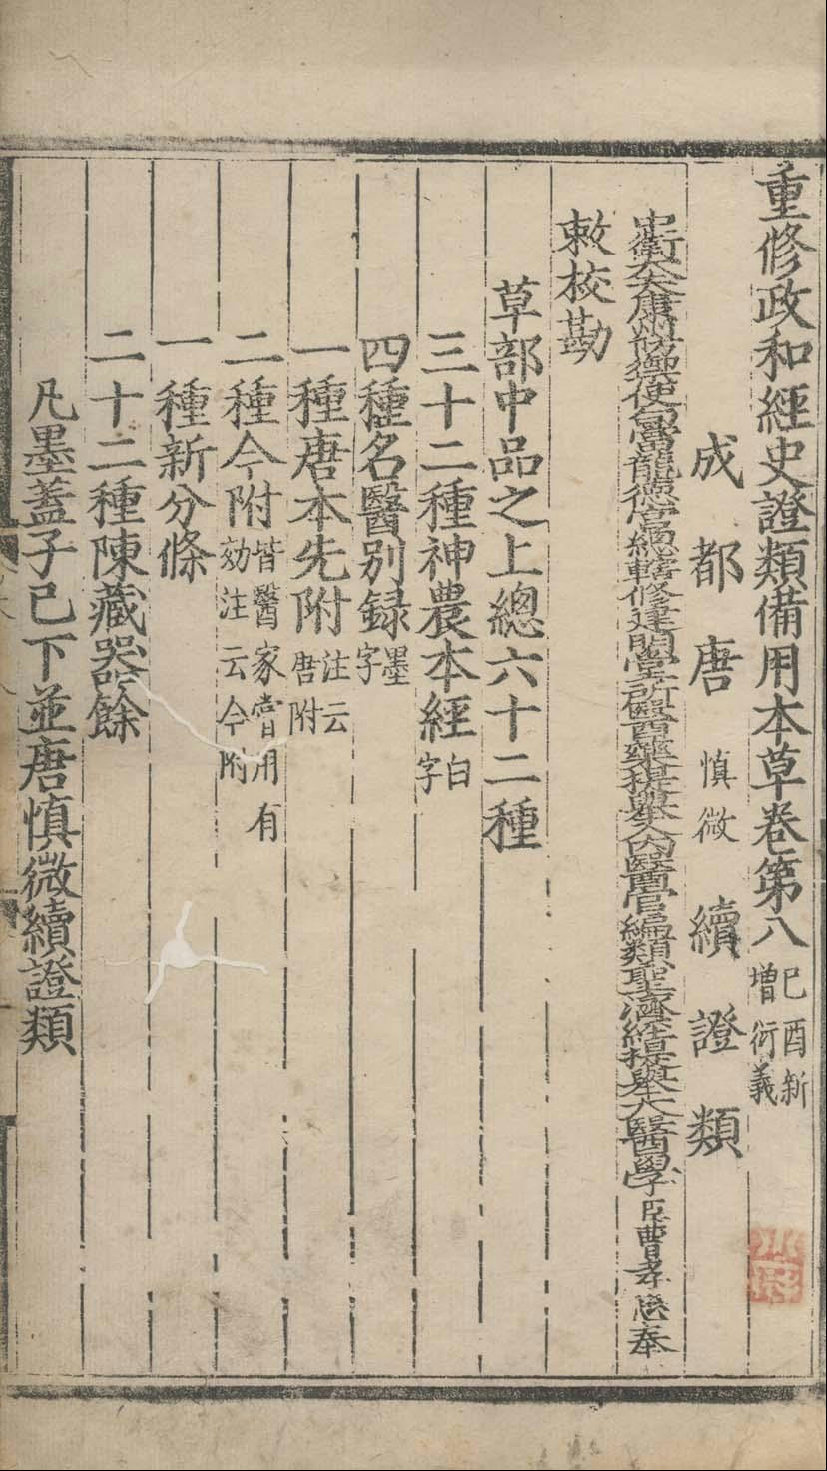 重修政和經史證類備用本草卷第八 己酉新增衍義
成都唐 慎微 續證類
中衛大夫康州防禦使句當龍德宮總轄修建明堂所醫藥提舉入內醫官編類聖濟經提舉太醫學臣曹孝忠奉
敕校勘
草部中品之上總六十二種
三十二種神農本經 白字
四種名醫别録 墨字
一種唐本先附 注云唐附
二種今附 皆醫家嘗用有効注云今附
一種新分條
二十二種陳藏器餘
凡墨蓋子已下並唐慎微續證類